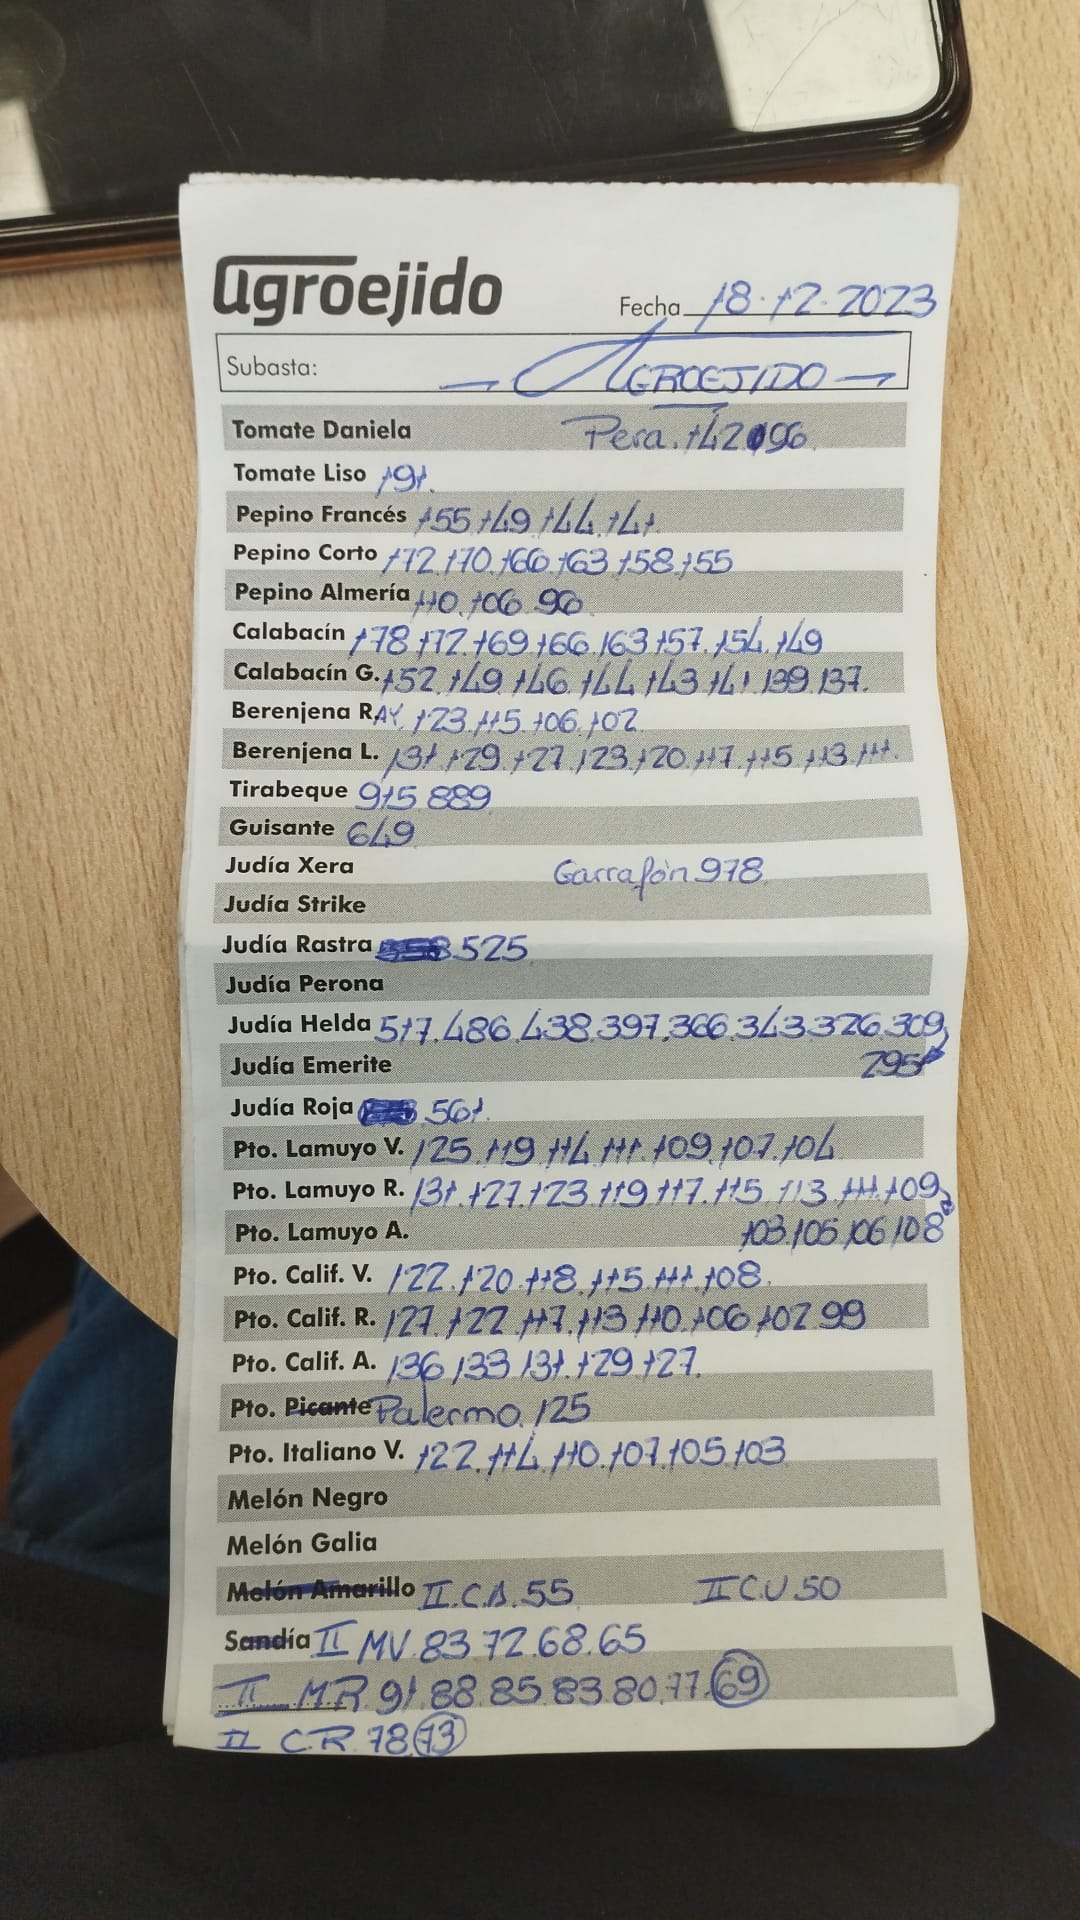 agroejido
Fecha 18.12.2023
Subasta: AGROEJIDO
Tomate Daniela Pera. 142 96.
Tomate Liso 191.
Pepino Francés 155 149 144. 141.
Pepino Corto 172.170.166.163 158.155
Pepino Almería 110.106.96
Calabacín 178 172.169.166.163 157.154.149
Calabacín G. 152 149 146.144 143 141 139.137.
Berenjena RAY. 123.115.106.102
Berenjena L. 131.129.127.123.120.117.115.113.111.
Tirabeque 915.889
Guisante 649
Judía Xera Garrafón 978
Judía Strike
Judía Rastra 525
Judía Perona
Judía Helda 517.486.438.397.366.343.326.309
Judía Emerite 295
Judía Roja .561.
Pto. Lamuyo V. 125.119.114.111.109.107.104
Pto. Lamuyo R. 131.127.123.119.117.115.113.111.109
Pto. Lamuyo A. 103.105.106 108
Pto. Calif. V. 122.120.118.115.111.108.
Pto. Calif. R. 127.122.117.113.110.106.102.99
Pto. Calif. A. 136.133.131.129.127.
Pto. Picante Palermo. 125
Pto. Italiano V. 122.114.110.107.105.103
Melón Negro
Melón Galia
Melón Amarillo II.C.A.55 II C.V.50
Sandía II MV.83.72.68.65
II MR 91.88.85.83.80.77.69
II C.R.78.73